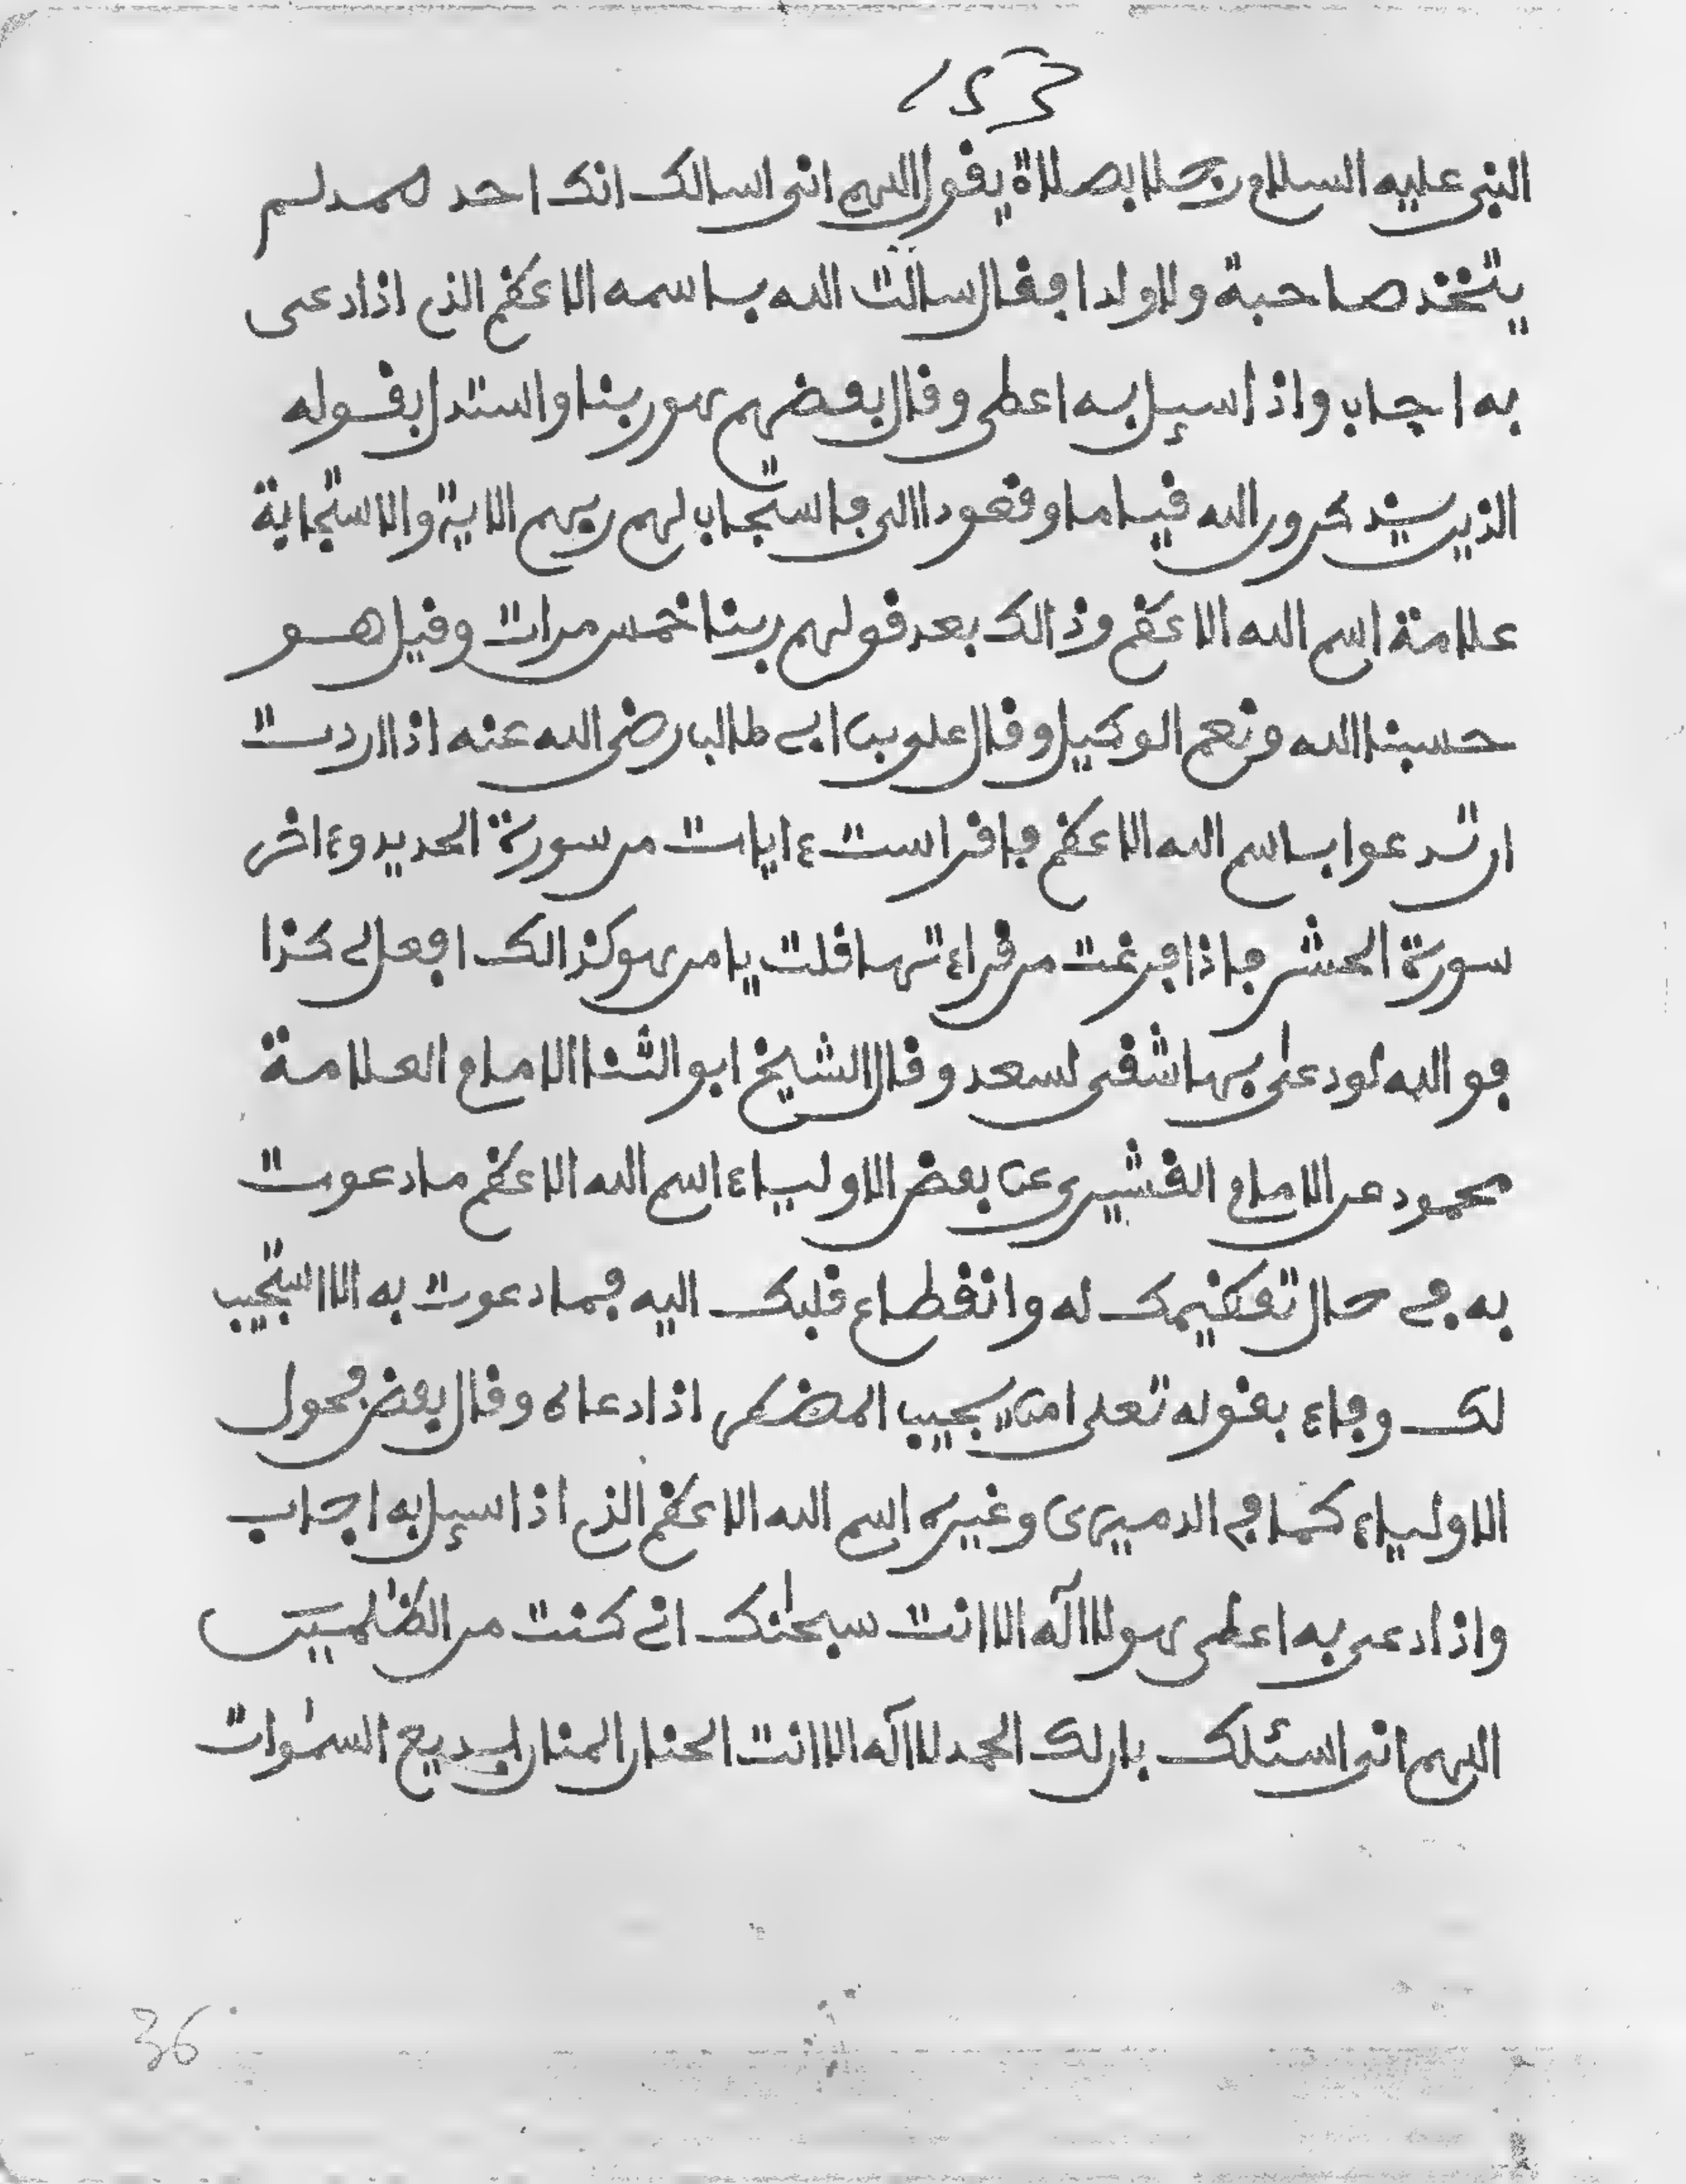 النبي عليه السلام رجلا بصلاة يقول اللهم اني اسالك انك احد صمد لم
يتخذ صاحبة ولا ولدا فقال سالت الله باسمه الاعظم الذي اذا دعى
به اجاب واذا سيل به اعطى وقال بعضهم هو ربنا واستدل بقوله
الذين يذكرون الله قياما وقعودا الى فاستجاب لهم ربهم الاية والاستجابة
علامة اسم الله الاعظم وذالك بعد قولهم ربنا خمس مرات وقيل هو
حسبنا الله ونعم الوكيل وقال علي بن ابي طالب رضي الله عنه اذا اردت
ان تدعوا باسم الله الاعظم فاقرا ست ءايات من سورة الحديد وءاخر
سورة الحشر فاذا فرغت من قراءتها قلت يا من هو كذالك افعل لي كذا
فوالله لو دعى بها شقي لسعد وقال الشيخ ابو الثنا الامام العلامة
محمود عن الامام القشيري عن بعض الاولياء اسم الله الاعظم ما دعوت
به في حال تعظيمك له وانقطاع قلبك اليه فما دعوت به الا استجيب
لك وفاء بقوله تعلى امن يجيب المضطر اذا دعاه وقال بعض فحول
الاولياء كما في الدميري وغيره اسم الله الاعظم الذي اذا سيل به اجاب
واذا دعي به اعطى هو لا اله الا انت سبحنك اني كنت من الظلمين
اللهم اني اسئلك بان لك الحمد لا اله الا انت الحنان المنان بديع السموات
36